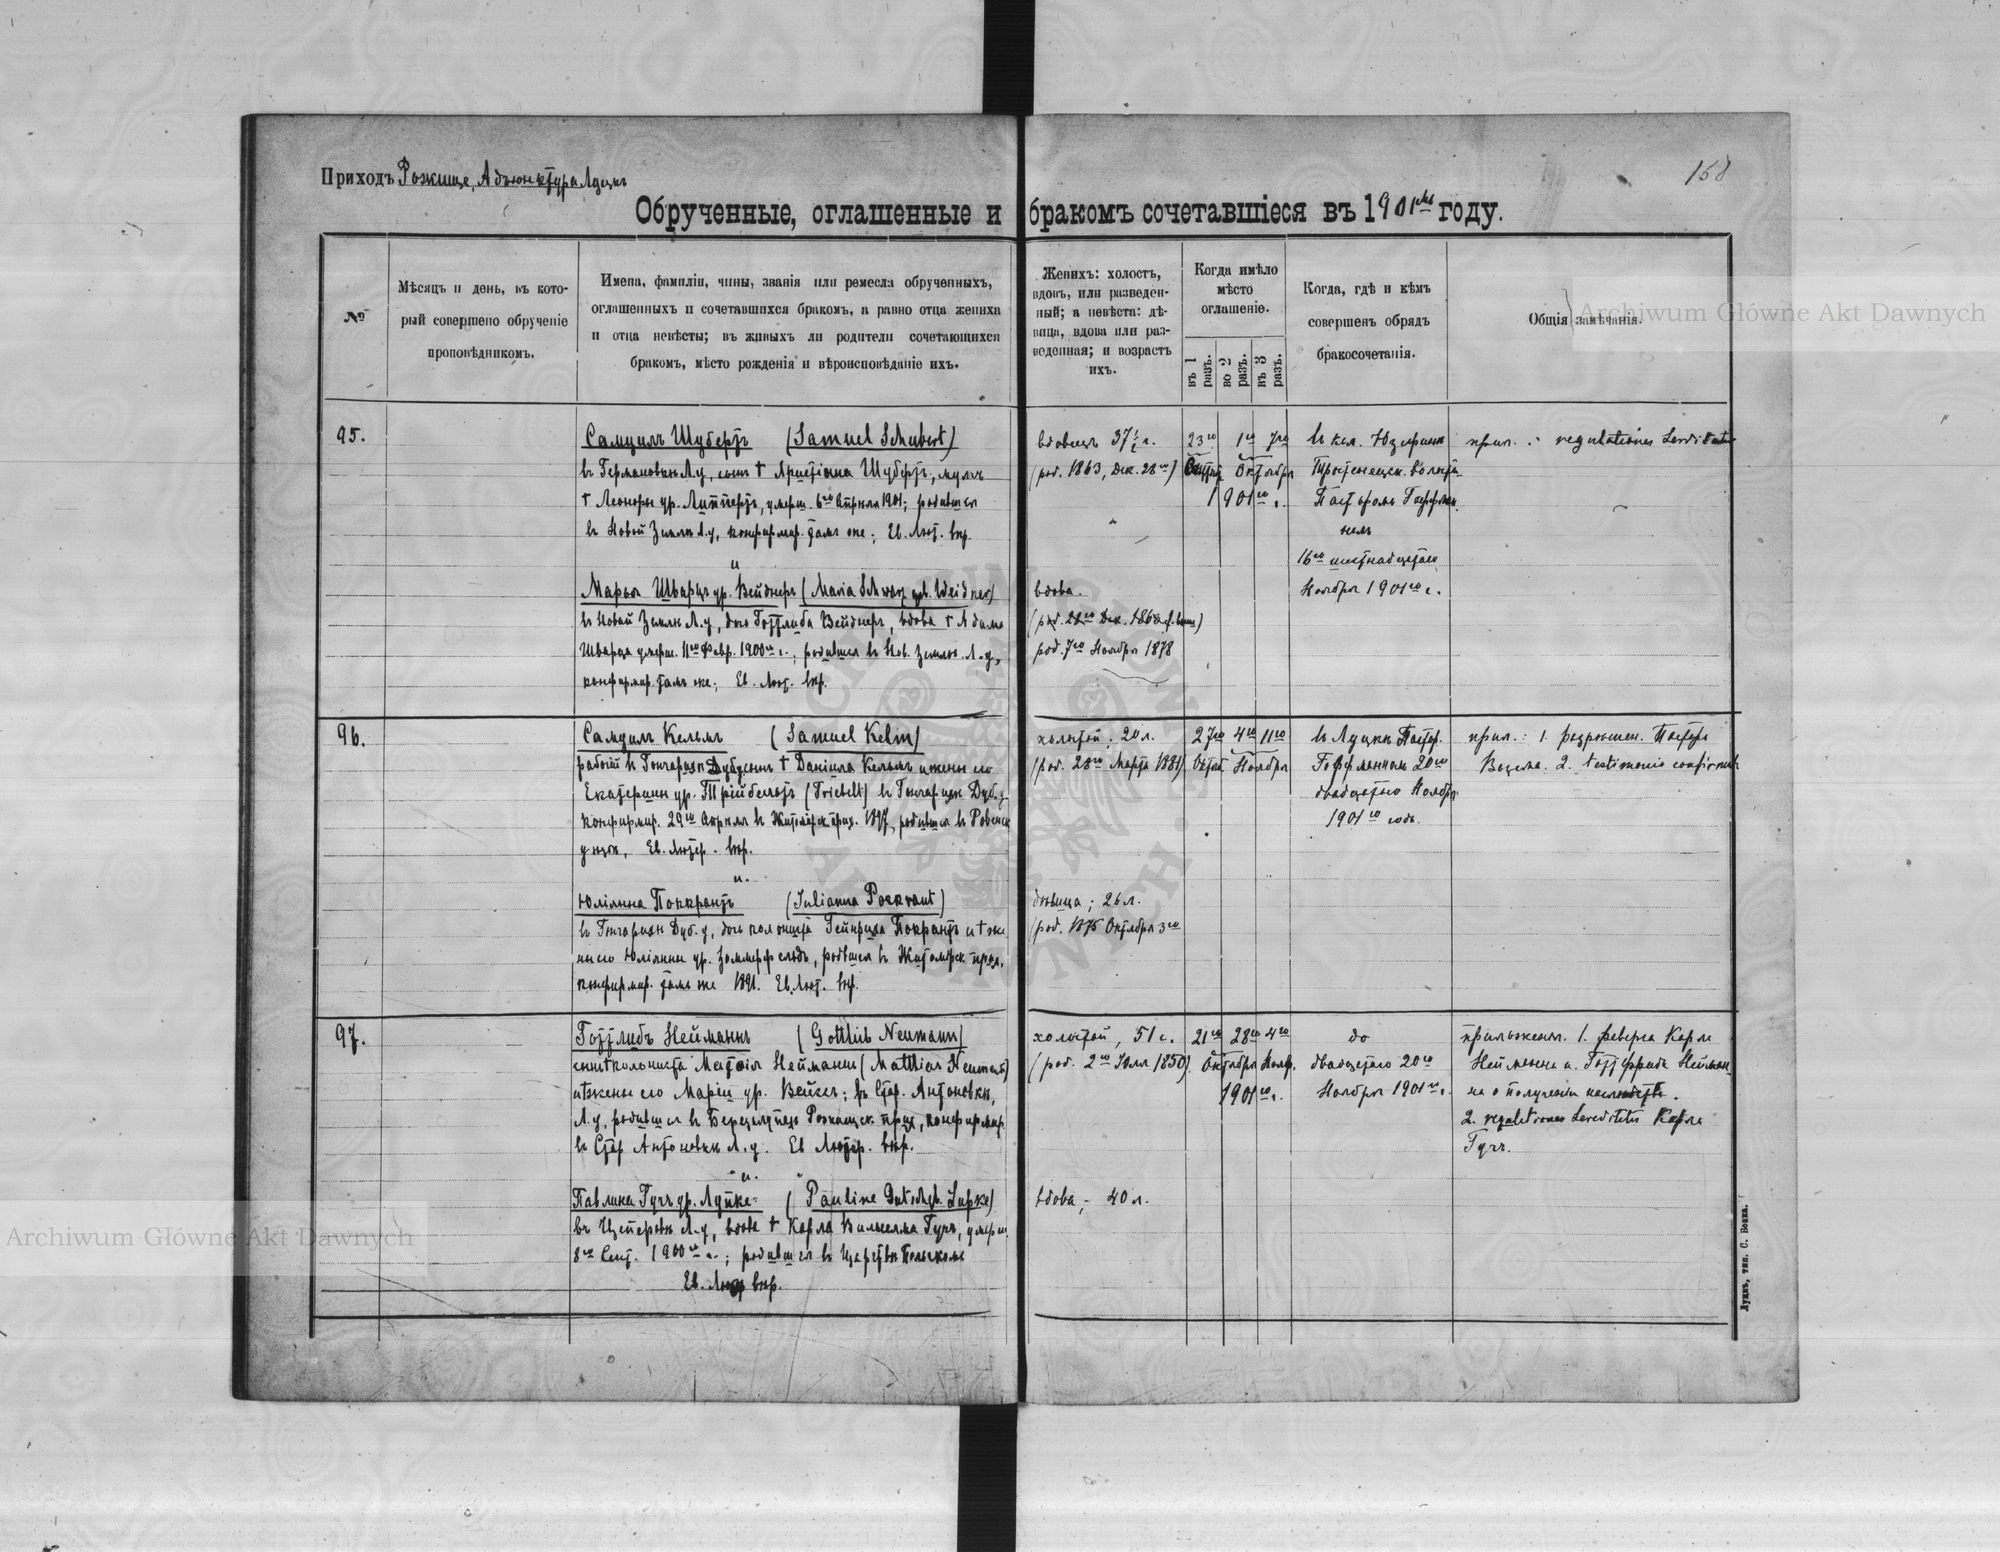 Приходъ Рожище, Адъюнктура Луцкъ
158
Обрученные, оглашенные и бракомъ сочетавшіеся въ 1901мъ году.
№
Мѣсяцъ и день, въ кото-
рый совершено обрученіе
проповѣдникомъ.
Имена, фамиліи, чины, званія или ремесла обрученныхъ,
оглашенныхъ и сочетавшихся бракомъ, а равно отца жениха
и отца невѣсты; въ живыхъ ли родители сочетающихся
бракомъ, мѣсто рожденія и вѣроисповѣданіе ихъ.
Женихъ: холостъ,
вдовъ, или разведен-
ный; а невѣста: дѣ-
вица, вдова или раз-
веденная; и возрастъ
ихъ.
Когда имѣло
мѣсто
оглашеніе.
въ 1 разъ.
во 2 разъ.
въ 3 разъ.
Когда, гдѣ и кѣмъ
совершенъ обрядъ
бракосочетанія.
Общія замѣчанія.
95.
Самуилъ Шубертъ (Samuel Schubert)
въ Германовкѣ Л.у., сынъ † Христіана Шубертъ, мужъ
† Леоноры ур. Липпертъ, умерш. 6го Апрѣля 1901; родивш
въ Новой Землѣ Л.у, конфирмир. тамъ же; Ев. Лют. вѣр.
и
Марья Шварцъ ур. Вейднеръ (Maria Schwarz geb. Weidner)
въ Новой Землѣ Л.у, дочь Готтлиба Вейднеръ, вдова † Адама
Шварца умерш. 11го Февр. 1900го г.; родивш въ Нов. Землѣ. Л.у,
конфирмир. тамъ же; Ев. Лют. вѣр.
вдовецъ 37½ л.
(род. 1863, Дек. 28го)
вдова.
род. 7го Ноября 1878
23го 1го 7го
Октября
1901го г.
въ кол. Юзефинѣ
Пасторомъ Гоффман-
номъ
16го шестнадцатаго
Ноября 1901го г.
прил. :
96.
Самуилъ Кельмъ (Samuel Kelm)
Даніила Кельмъ и жены его
Екатерины ур. Трійбельтъ (Triebelt) въ Дуб.у
конфирмир. 29го Апрѣля въ прих. 1897, родивш въ Ровенск
уѣздѣ, Ев. Лютер. вѣр.
и.
Юліянна Поккрантъ (Julianna Pockrant)
Дуб. у, дочь колониста Гейнриха Покрантъ и † же-
ны его Юліянны ур. Зоммерфельдъ, въ Житомірск. прих.
конфирмир. тамъ же 1891. Ев. Лют. вѣр.
холостой; 20 л.
(род. 28го Марта 1881)
дѣвица; 26 л.
(род. 1875 Октября 3го
27го 4го 11го
Октяб. Ноября
въ Луцкѣ Пастор.
Гоффманномъ 20го
двадцатаго Ноября
1901го года.
прил.: 1. разрѣшен. Пастора
2.
97.
Готтлибъ Нейманнъ (Gottlieb Neumann)
сынъ колониста Матвія Нейманнъ (Matthias Neumann)
и жены его Маріи ур. Вейсъ; въ Стар. Антоновкѣ,
Л.у, родивш въ Рожищск. прих, конфирмир.
въ Стар Антоновкѣ Л.у. Ев Лютер. вѣр.
и.
Павлина Гучъ ур. Лупке (Pauline Lupke)
Л.у, вдова † Карла Вильгелма Гучъ, умерш.
8го Сент. 1900го г.; родивш въ Царствѣ Польскомъ
Ев. Лют вѣр.
холостой, 51 г.
(род. 2го Юля 1850)
вдова; 40 л.
21го 28го 4го
Октября Нояб.
1901го г.
до
двадцатаго 20го
Ноября 1901го г.
приложены. 1. реверсъ Карла
Нейманна и Готтфрида Нейман-
на о полученіи наслѣдств.
2. Карла
Гучъ.
Луцкъ, тип. С. Бонка.
Archiwum Główne Akt Dawnych
Archiwum Główne Akt Dawnych